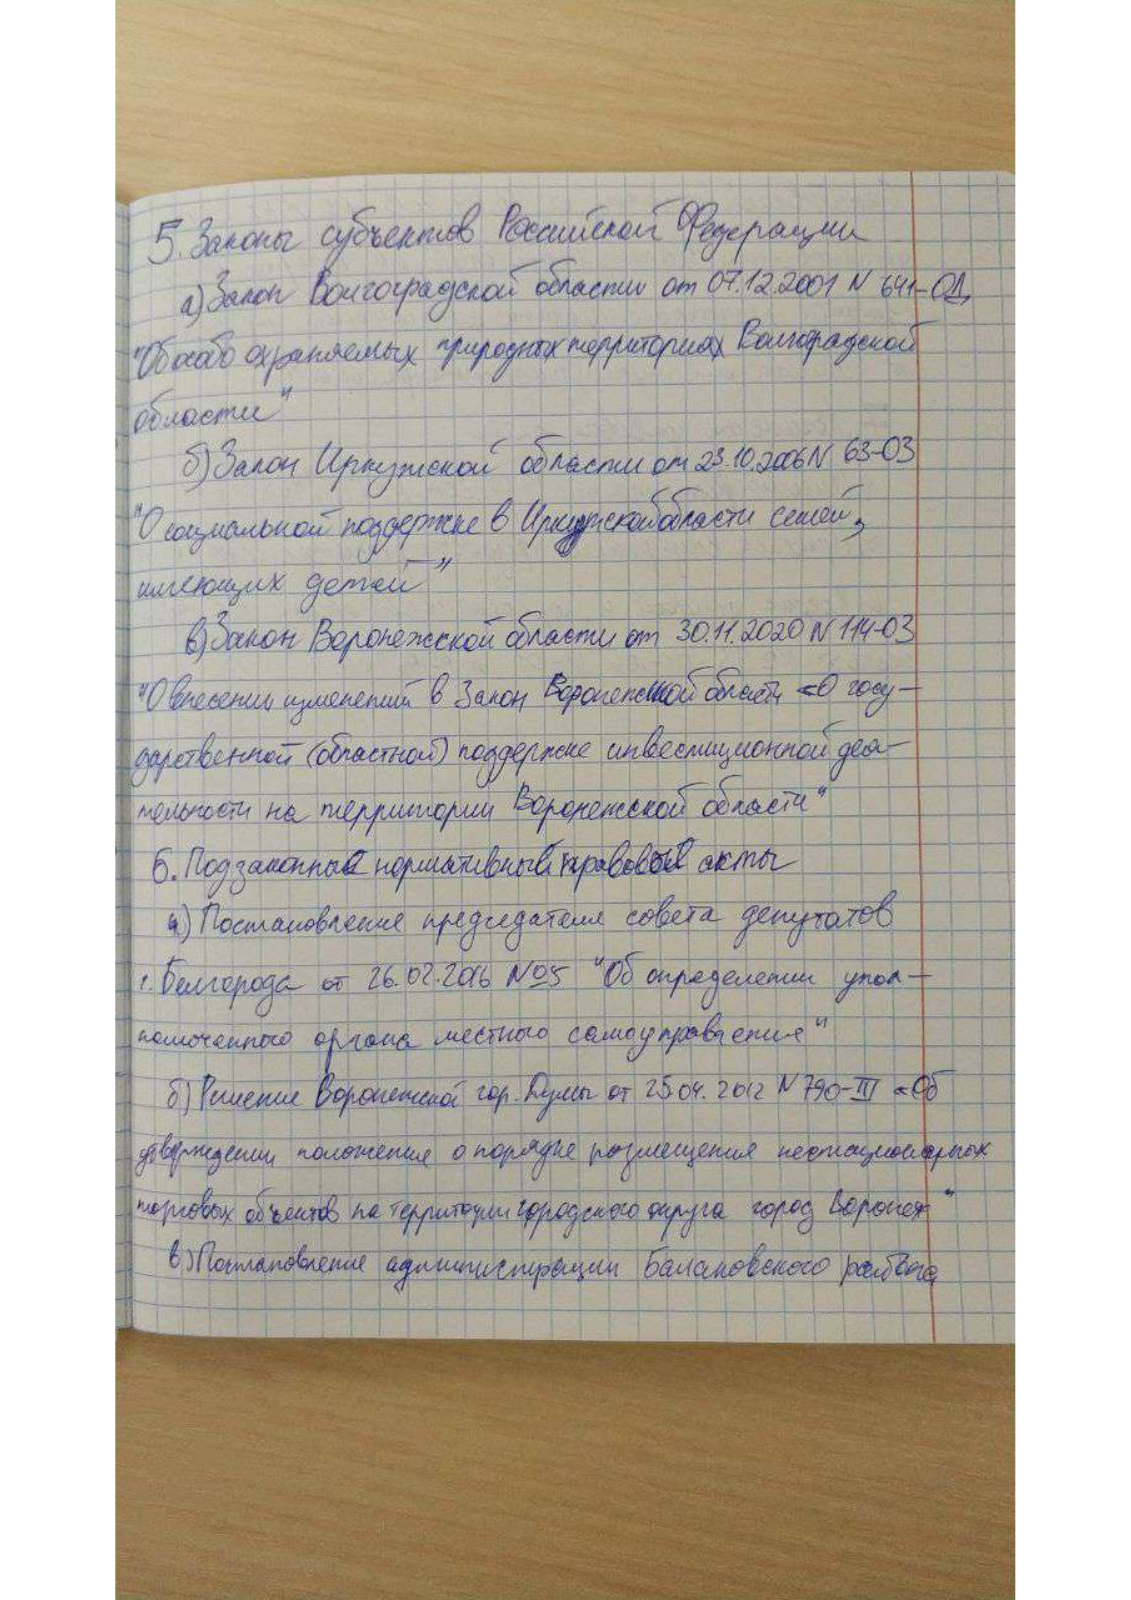 5. Законы субъектов Российской Федерации
а) Закон Волгоградской области от 07.12.2001 N 641-ОД
"Об особо охраняемых природных территориях Волгоградской
области"
б) Закон Иркутской области от 23.10.2006 N 63-ОЗ
"О социальной поддержке в Иркутской области семей,
имеющих детей"
в) Закон Воронежской области от 30.11.2020 N 114-ОЗ
"О внесении изменений в Закон Воронежской области «О госу-
дарственной (областной) поддержке инвестиционной дея-
тельности на территории Воронежской области"
6. Подзаконные нормативные правовые акты
а) Постановление председателя совета депутатов
г. Белгорода от 26.02.2016 №05 "Об определении упол-
номоченного органа местного самоуправления"
б) Решение Воронежской гор. Думы от 25.04.2012 N 790-III «Об
утверждении положения о порядке размещения нестационарных
торговых объектов на территории городского округа город Воронеж"
в) Постановление администрации Балаковского района